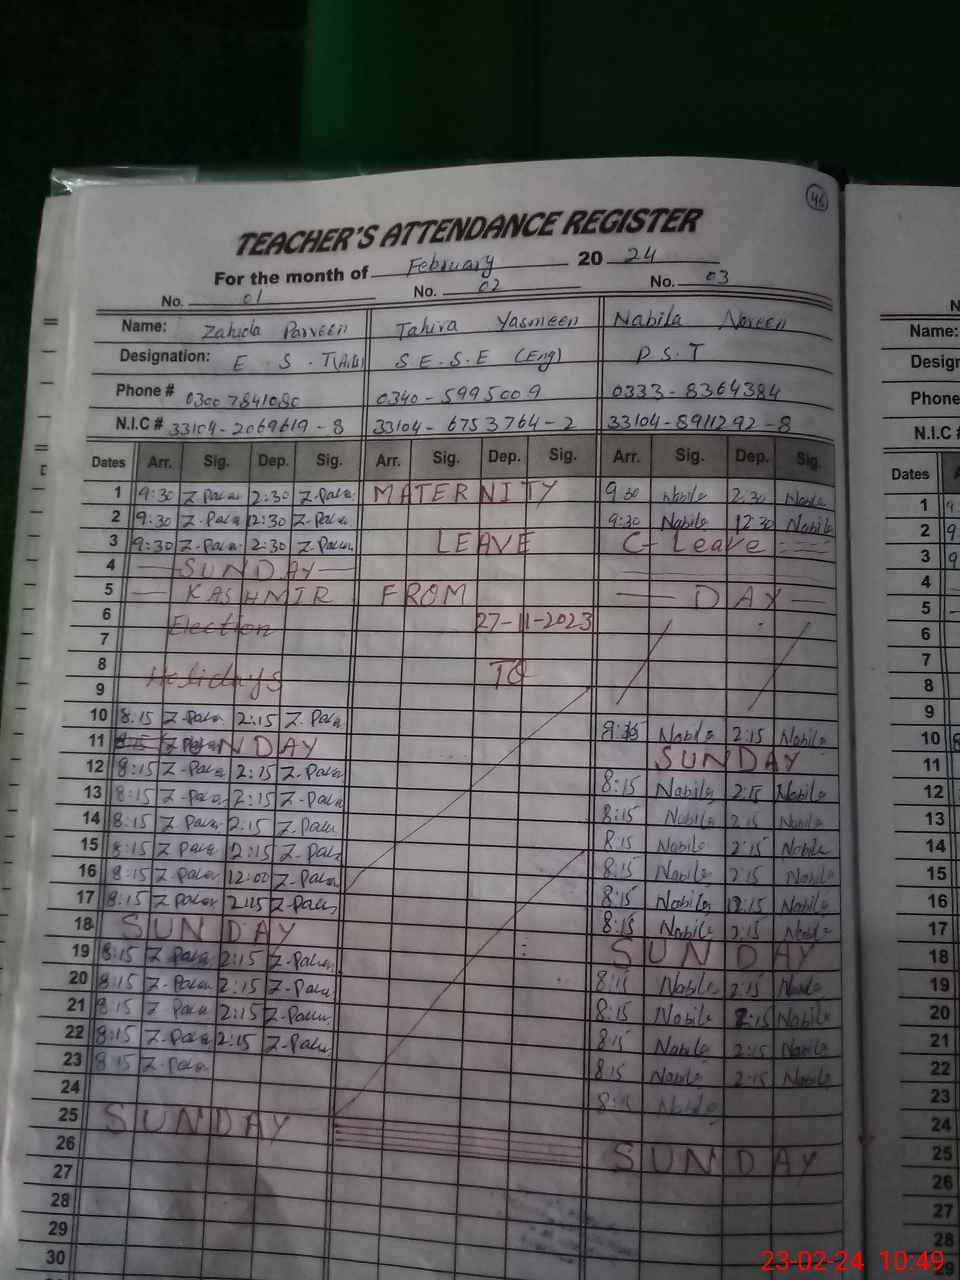 46
TEACHER'S ATTENDANCE REGISTER
For the month of February 20 24
No. 01 No. 02 No. 03
Name: Zahida Parveen Tahira Yasmeen Nabila Noreen
Designation: E S.T S.E.S.E (Eng) P.S.T
Phone # 0300 7841080 0340-5995009 0333-8364384
N.I.C # 33104-2069619-8 33104-6753764-2 33104-8911292-8
Dates Arr. Sig. Dep. Sig. Arr. Sig. Dep. Sig. Arr. Sig. Dep. Sig.
1 9:30 2:30 MATERNITY 9 30 Nabila 2:30 Nabila
2 9:30 12:30 9:30 Nabila 12 30 Nabila
3 9:30 2:30 LEAVE C- Leave
4 SUNDAY
5 KASHMIR FROM DAY
6 Election 27-11-2023
7
8 Holidays TO
9
10 8:15 2:15 Nabila 2:15 Nabila
11 SUNDAY SUNDAY
12 8:15 2:15 8:15 Nabila 2:15 Nabila
13 8:15 2:15 8:15 Nabila 2:15 Nabila
14 8:15 2:15 8:15 Nabila 2:15 Nabila
15 8:15 2:15 8:15 Nabila 2:15 Nabila
16 8:15 12:00 8:15 Nabila 12:15 Nabila
17 8:15 2:15 8:15 Nabila 2:15 Nabila
18 SUNDAY SUNDAY
19 8:15 2:15 8:15 Nabila 2:15 Nabila
20 8:15 2:15 8:15 Nabila 2:15 Nabila
21 8:15 2:15 8:15 Nabila 2:15 Nabila
22 8:15 2:15 8:15 Nabila 2:15 Nabila
23 8:15 8:15 Nabila
24
25 SUNDAY SUNDAY
26
27
28
29
30
Name:
Phone
N.I.C #
Dates
1
2
3
4
5
6
7
8
9
10
11
12
13
14
15
16
17
18
19
20
21
22
23
24
25
26
27
28
23-02-24 10:49